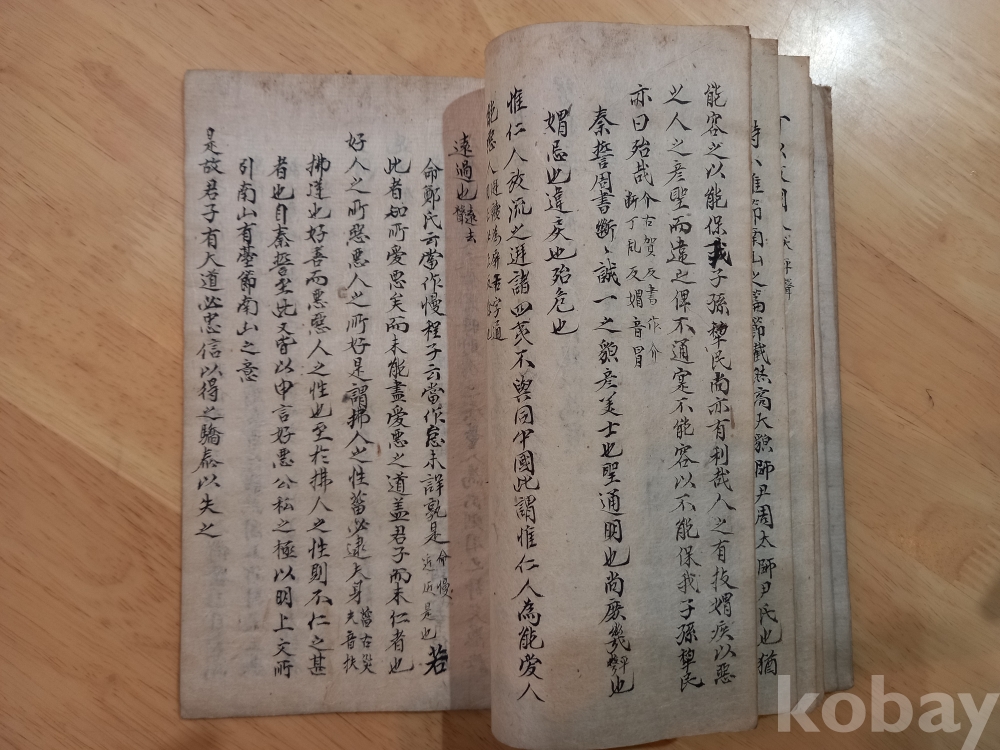 詩小雅節南山之篇節截然高大貌師尹周太師尹氏也猶
能容之以能保我子孫黎民尚亦有利哉人之有技媢疾以惡
之人之彦聖而違之俾不通寔不能容以不能保我子孫黎民
亦曰殆哉
个古賀反書作介
斷丁乱反媢音冒
秦誓周書斷〻誠一之貌彦美士也聖通明也尚庶幾也
媢忌也違戾也殆危也
惟仁人放流之迸諸四夷不與同中國此謂惟仁人為能愛人
能惡人
遠過也
遠去聲
命鄭氏云當作慢程子云當作怠未詳孰是
命慢
近近是也
若
此者知所愛惡矣而未能盡愛惡之道盖君子而未仁者也
好人之所惡惡人之所好是謂拂人之性菑必逮夫身
菑古災
夫音扶
拂逆也好善而惡惡人之性也至於拂人之性則不仁之甚
者也自秦誓至此又皆以申言好惡公私之極以明上文所
引南山有臺節南山之意
是故君子有大道必忠信以得之驕泰以失之
kobay